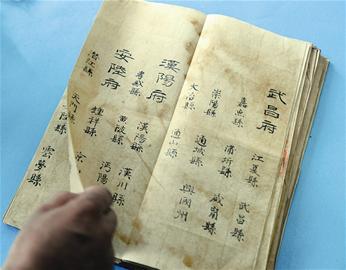 武昌府
江夏縣
武昌縣
嘉魚縣
蒲圻縣
咸甯縣
崇陽縣
通城縣
興國州
大冶縣
通山縣
漢陽府
漢陽縣
漢川縣
孝感縣
黄陂縣
沔陽
安陸府
鍾祥縣
潛江縣
天門縣
安陸縣
雲夢縣